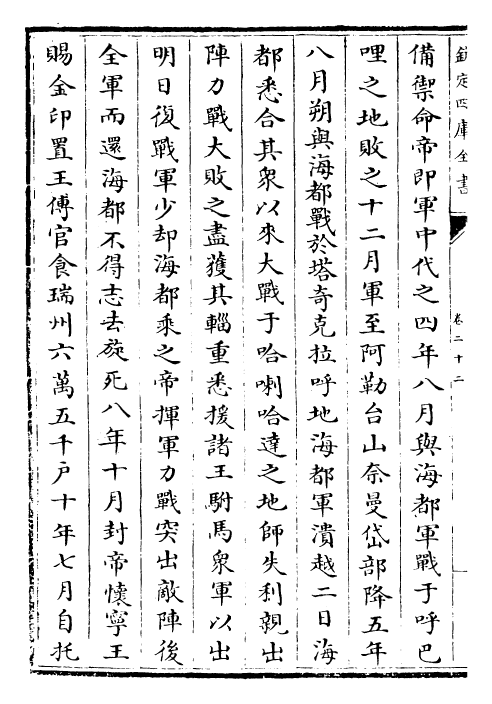 欽定四庫全書
卷二十二
備禦命帝即軍中代之四年八月與海都軍戰于呼巴
哩之地敗之十二月軍至阿勒台山奈曼岱部降五年
八月朔與海都戰於塔奇克拉呼地海都軍潰越二日海
都悉合其衆以來大戰于哈喇哈達之地師失利親出
陣力戰大敗之盡獲其輜重悉援諸王駙馬衆軍以出
明日復戰軍少却海都乘之帝揮軍力戰突出敵陣後
全軍而還海都不得志去旋死八年十月封帝懷寧王
賜金印置王傅官食瑞州六萬五千戸十年七月自托